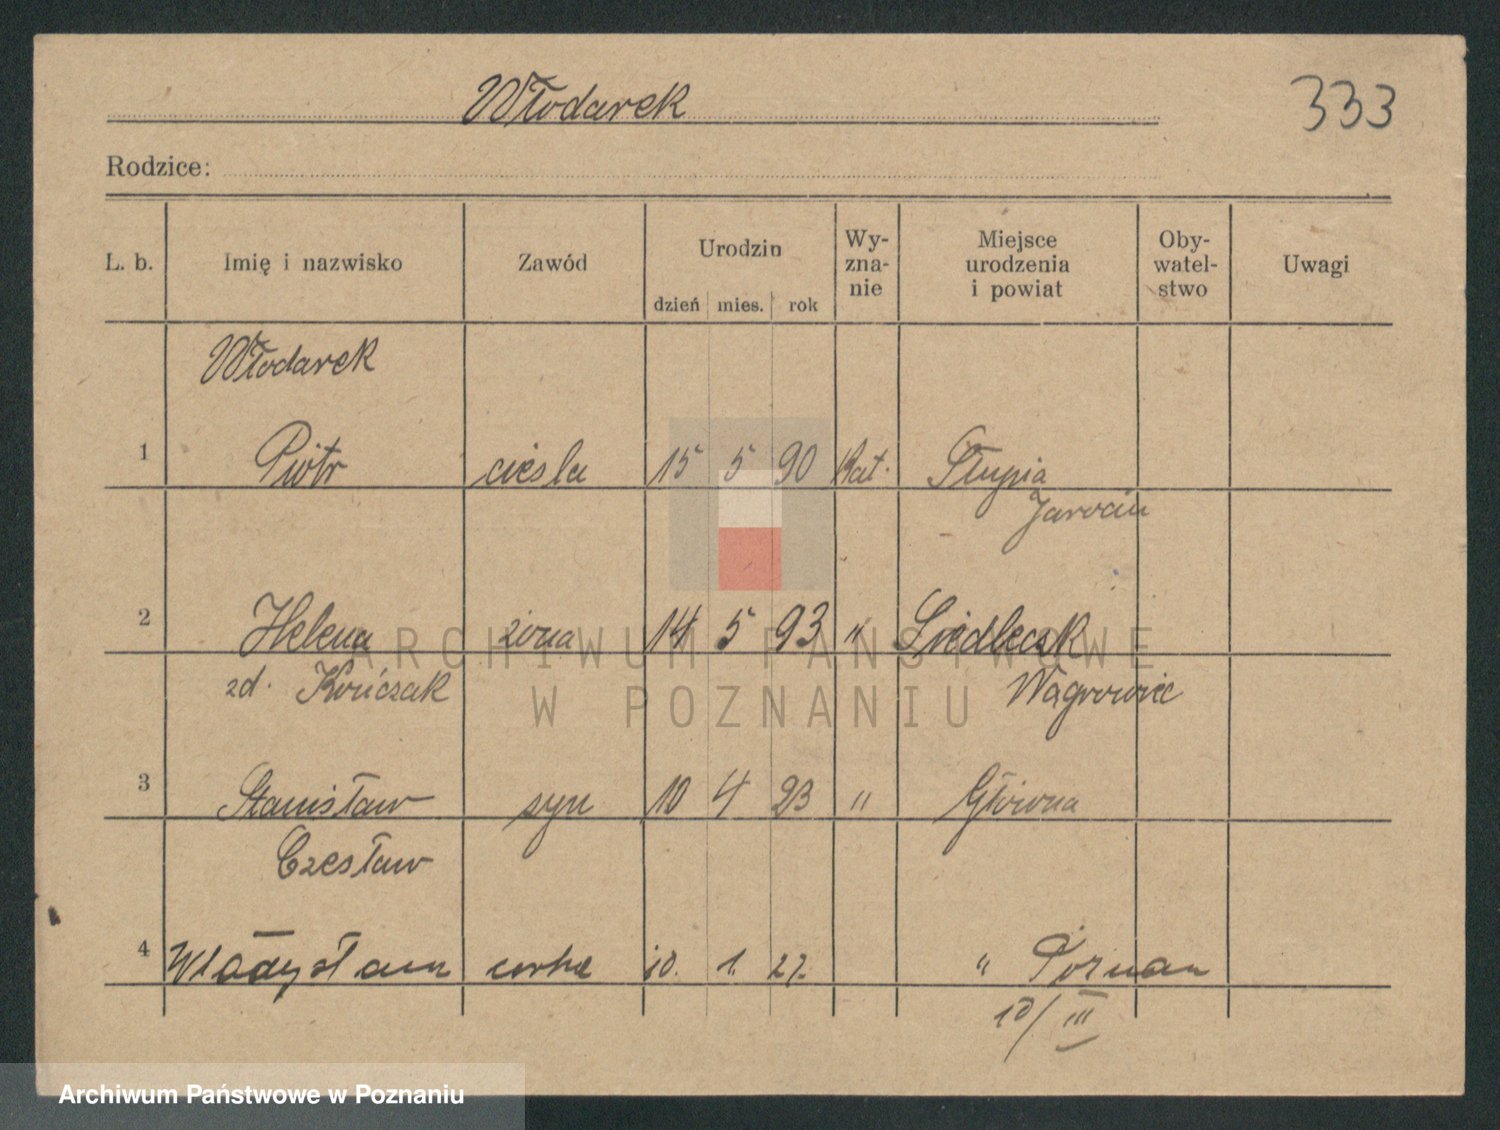 Włodarek
333
Rodzice:
L. b. Imię i nazwisko Zawód Urodzin dzień mies. rok Wy-zna-nie Miejsce urodzenia i powiat Oby-watel-stwo Uwagi
Włodarek
1 Piotr cieśla 15 5 90 Kat. Słupia
Jarocin
2 Helena żona 14 5 93 " Siedleczk
zd. Kończak Wągrowiec
ARCHIWUM PAŃSTWOWE
W POZNANIU
3 Stanisław syn 10 4 23 " Główna
Czesław
4 Władysława córka 10. 1. 27. " Poznan
10/III
Archiwum Państwowe w Poznaniu